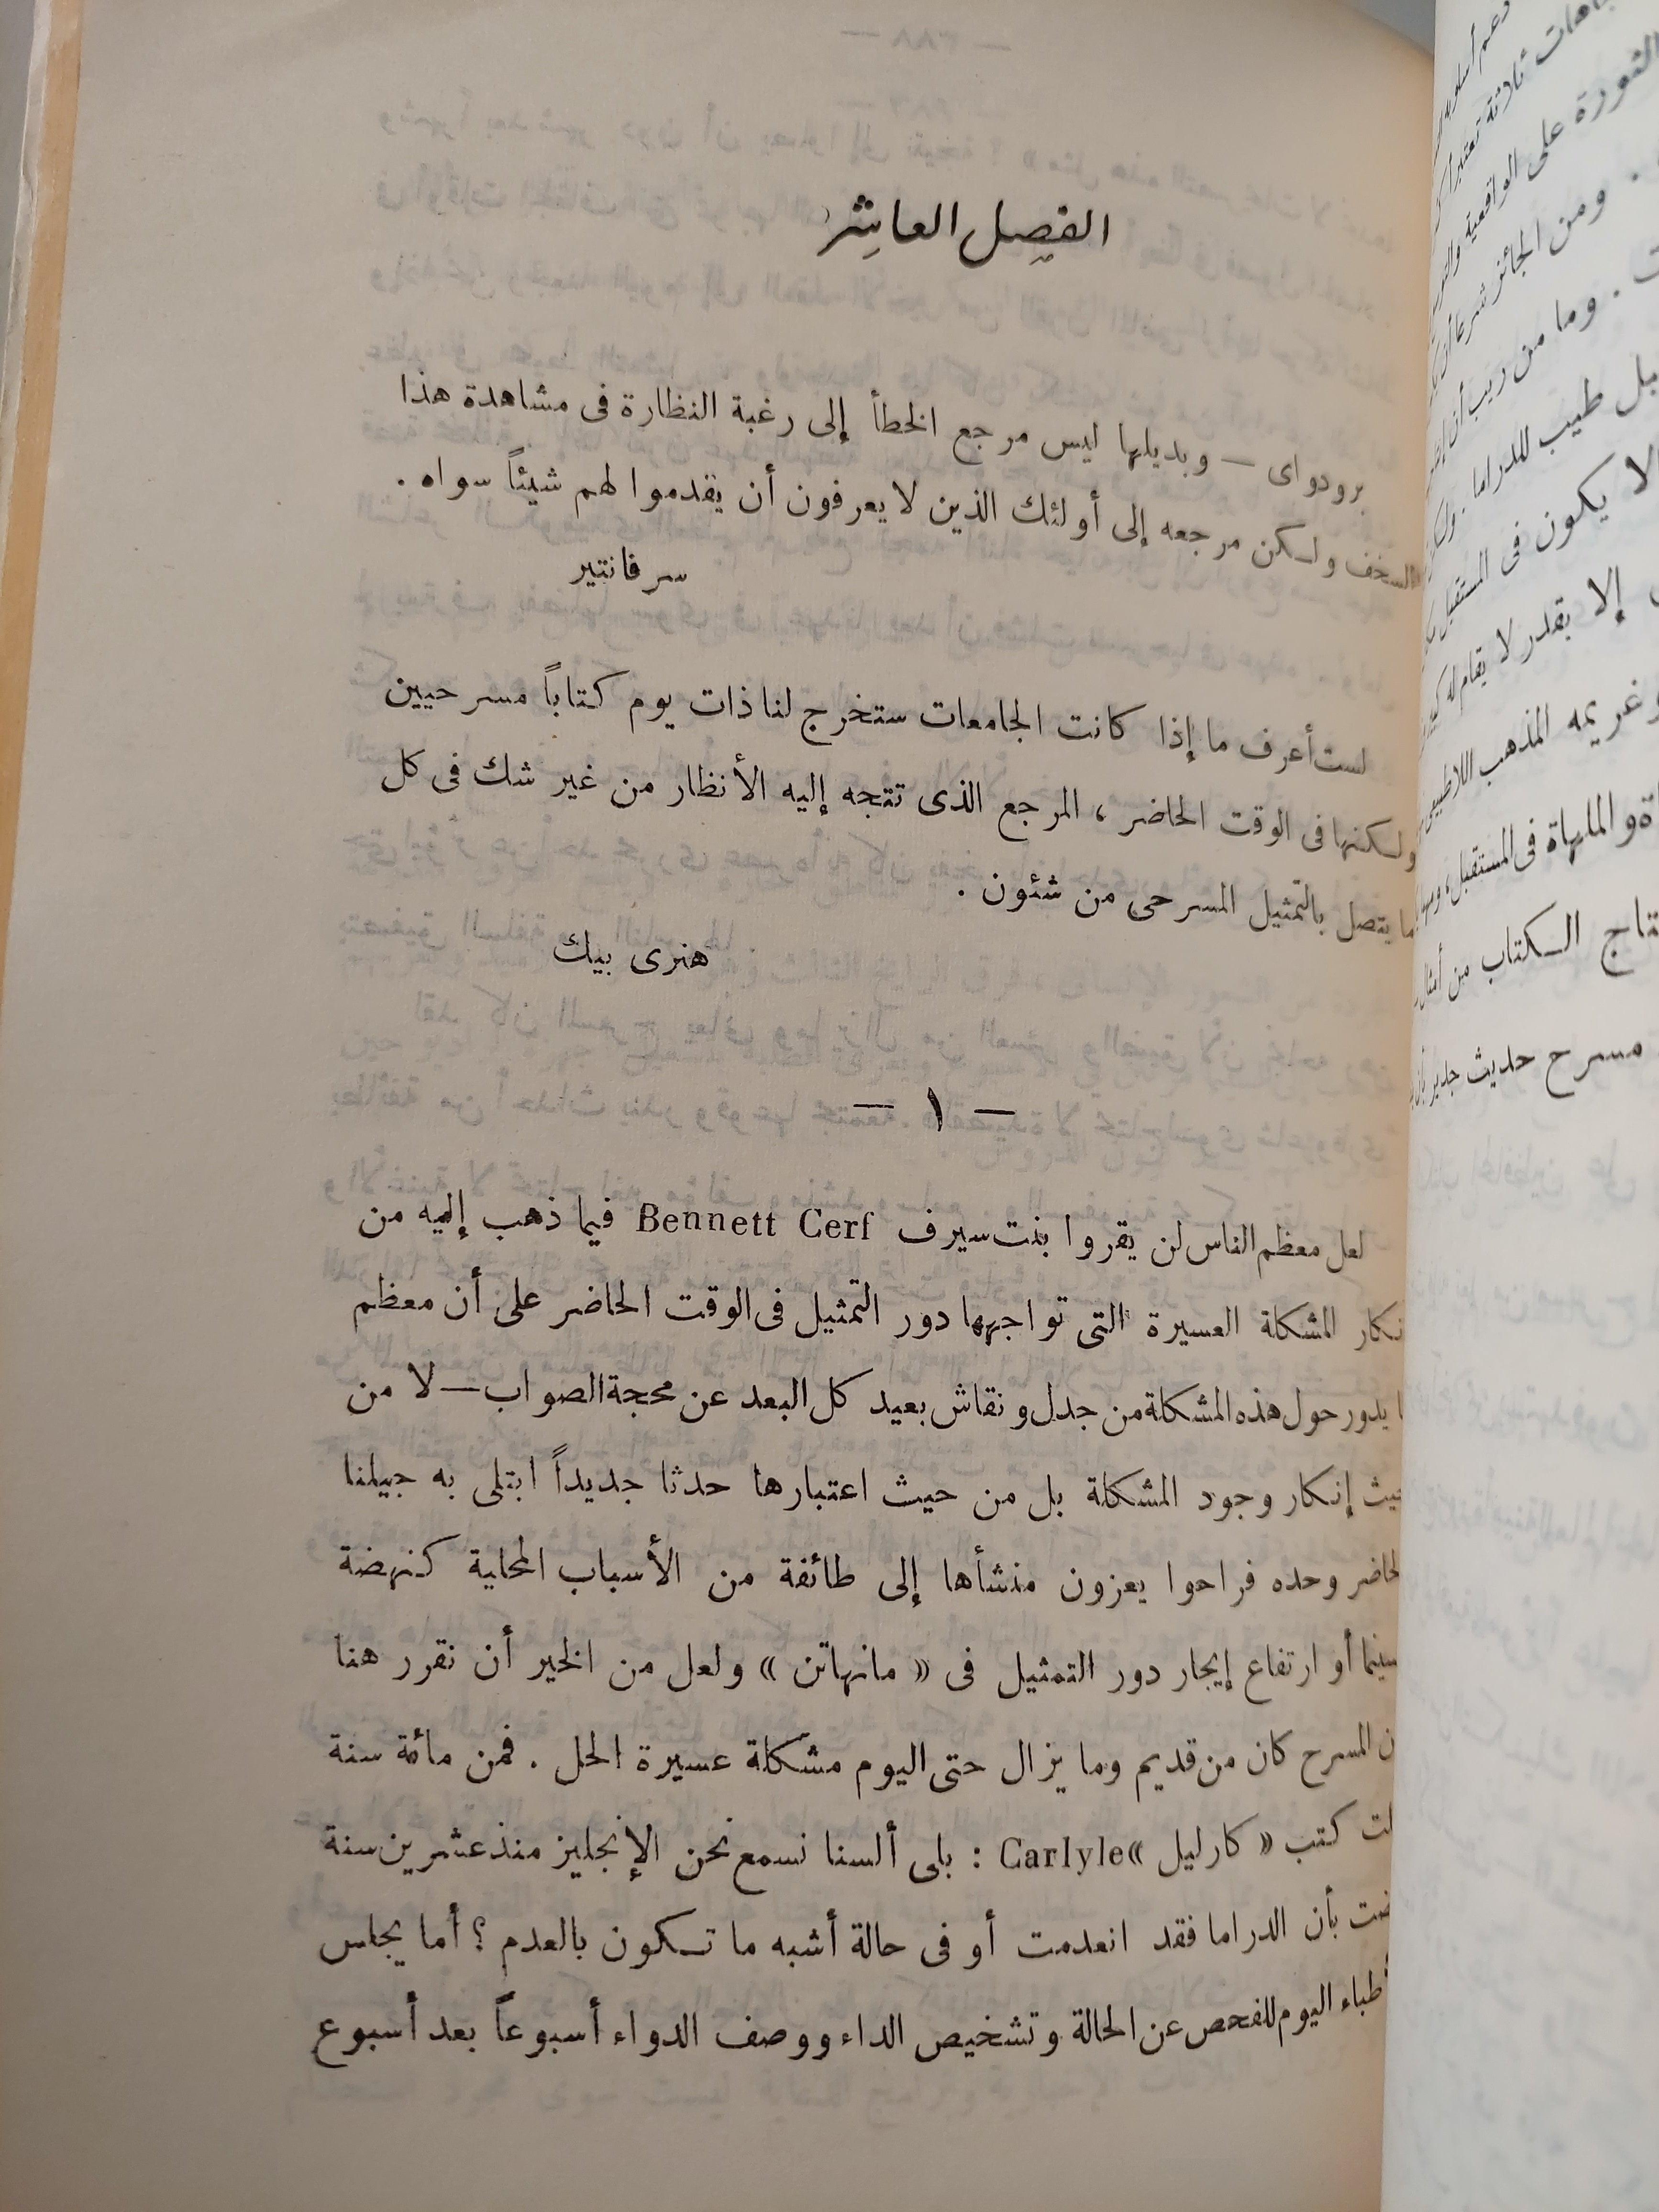 الفصل العاشر
برودواى — وبديلها ليس مرجع الخطأ إلى رغبة النظارة فى مشاهدة هذا
السخف ولكن مرجعه إلى أولئك الذين لا يعرفون أن يقدموا لهم شيئاً سواه .
سرفانتير
لست أعرف ما إذا كانت الجامعات ستخرج لنا ذات يوم كتاباً مسرحيين
ولكنها فى الوقت الحاضر ، المرجع الذى تتجه إليه الأنظار من غير شك فى كل
ما يتصل بالتمثيل المسرحى من شئون .
هنرى بيك
— ١ —
لعل معظم الناس لن يقروا بنت سيرف Bennett Cerf فيما ذهب إليه من
نكار المشكلة العسيرة التى تواجهها دور التمثيل فى الوقت الحاضر على أن معظم
ا يدور حول هذه المشكلة من جدل ونقاش بعيد كل البعد عن محجة الصواب — لا من
يث إنكار وجود المشكلة بل من حيث اعتبارها حدثا جديداً ابتلى به جيلنا
لحاضر وحده فراحوا يعزون منشأها إلى طائفة من الأسباب المحلية كنهضة
سينما أو ارتفاع إيجار دور التمثيل فى « مانهاتن » ولعل من الخير أن نقرر هنا
ن المسرح كان من قديم وما يزال حتى اليوم مشكلة عسيرة الحل . فمن مائة سنة
لت كتب « كارليل » Carlyle : بلى ألسنا نسمع نحن الإنجليز منذ عشرين سنة
ضت بأن الدراما فقد انعدمت أو فى حالة أشبه ما تكون بالعدم ؟ أما يجلس
أطباء اليوم للفحص عن الحالة وتشخيص الداء ووصف الدواء أسبوعاً بعد أسبوع
ثلاثة
الثورة على الواقعية
ومن الجائز
وما من ريب أن
بل طبيب للدراما .
لا يكون فى المستقبل
إلا بقدر لا يقام له
وغريمه المذهب
والملهاة فى المستقبل ،
الكتاب من أمثال
مسرح حديث جدير